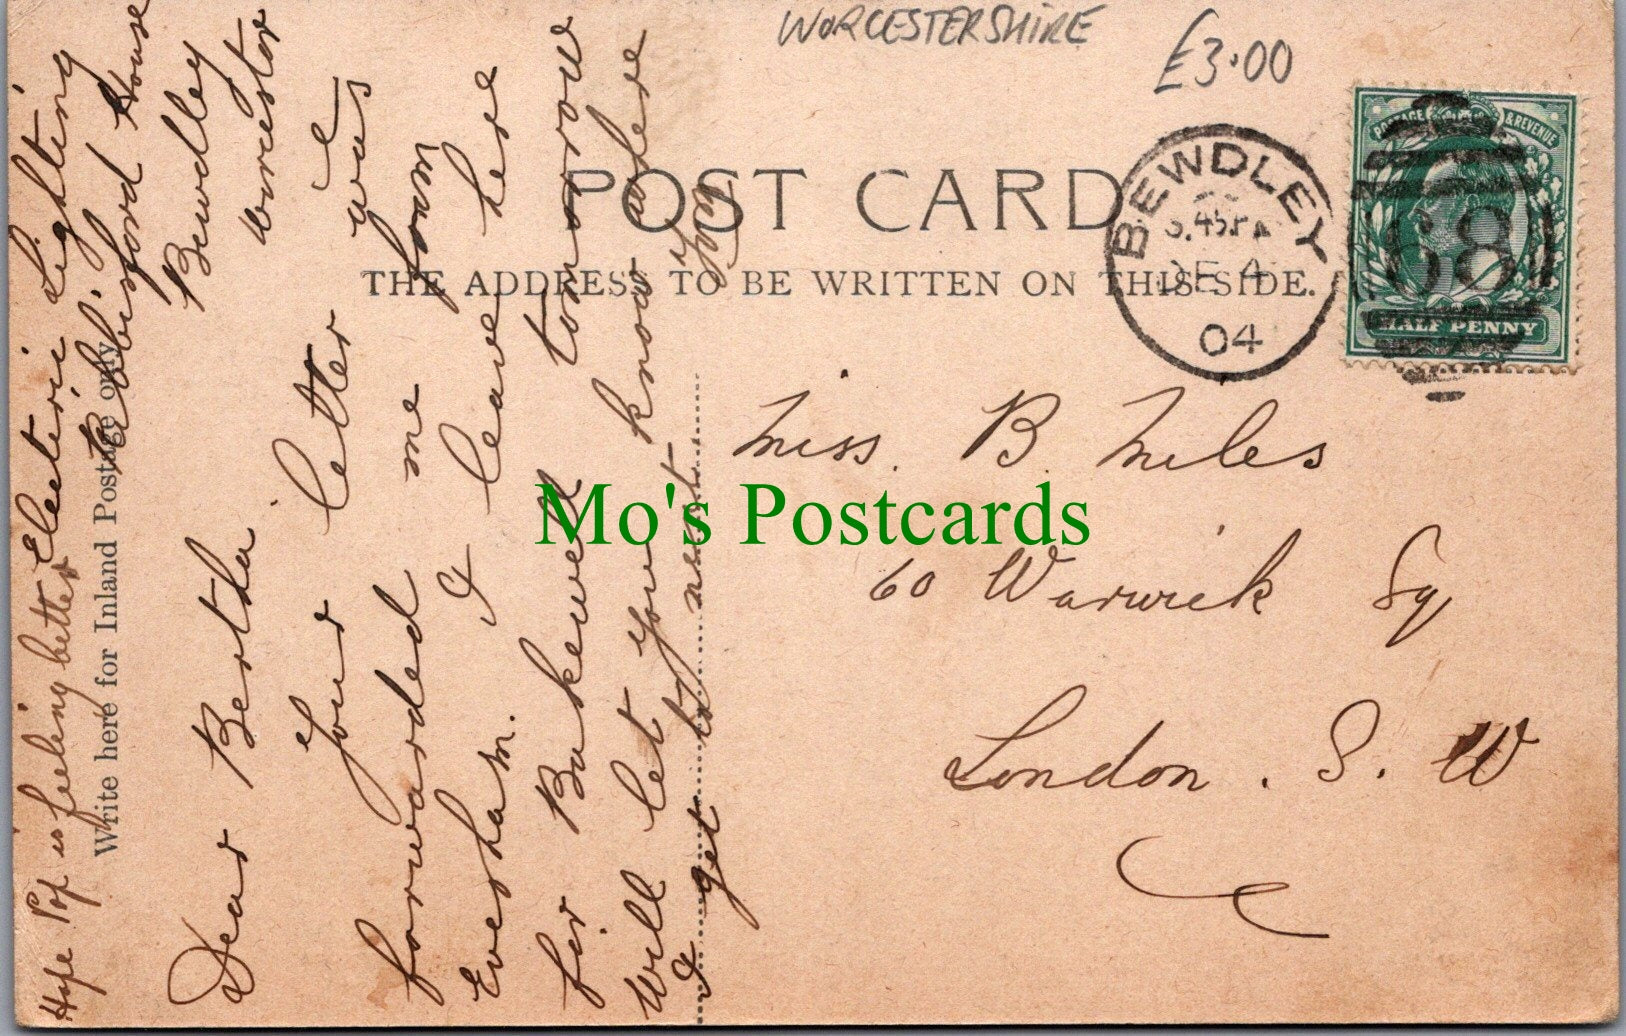 WORCESTERSHIRE
£3.00
POST CARD
THE ADDRESS TO BE WRITTEN ON THIS SIDE.
Write here for Inland Postage only.
BEWDLEY
DE 4
04
POSTAGE & REVENUE
HALF PENNY
68
Miss. B Miles
60 Warwick Sq
London. S. W
Electric Lighting
House
Bewdley
Worcester
Dear Bertha
Your letter was
forwarded me from
Evesham. I leave here
for Bakewell tomorrow
Will let you know where
I get to next.
Hope Pop is feeling better
Mo's Postcards